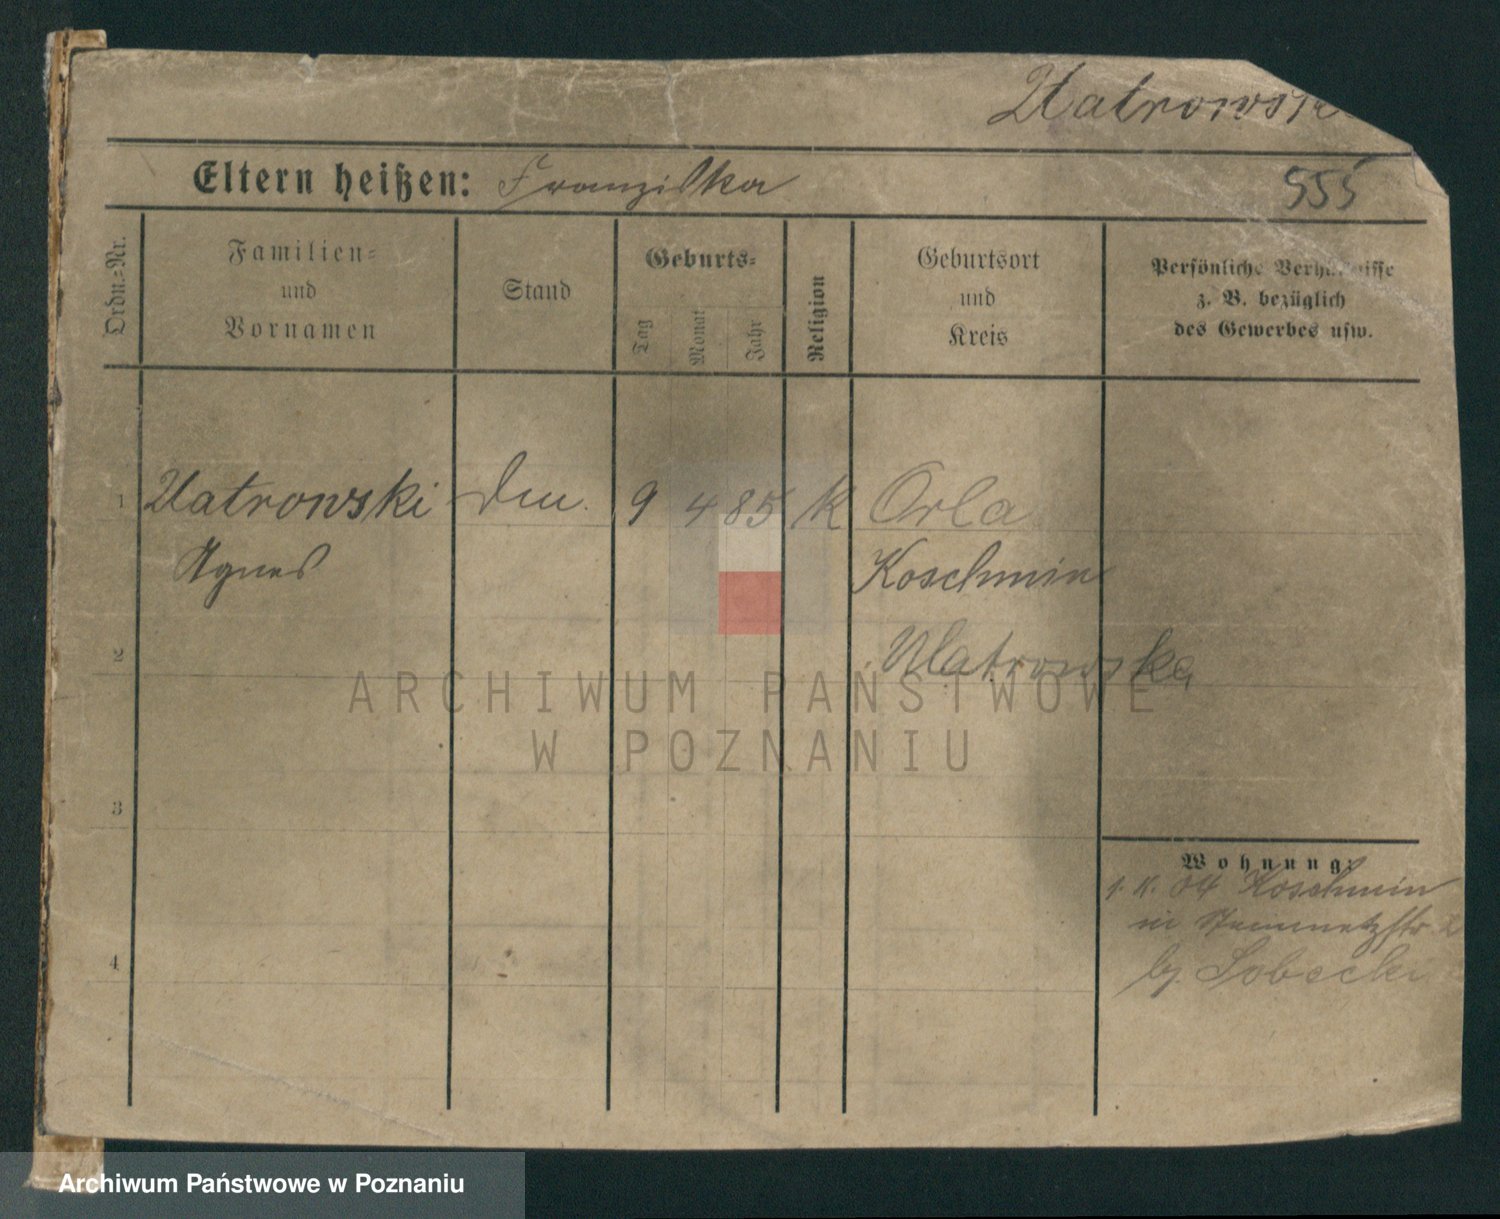 Uatrowski
Eltern heißen: Franziska 555
Ordn.=Nr.
Familien=
und
Vornamen
Stand
Geburts=
Tag
Monat
Jahr
Religion
Geburtsort
und
Kreis
Persönliche Verhältnisse
z. B. bezüglich
des Gewerbes usw.
1 Uatrowski 9 4 85 K Orla
Agnes Koschmin
2 Ulatrowska
3
4
Wohnung:
1. K. 04 Koschmin
in
bz. Sobecki
ARCHIWUM PAŃSTWOWE
W POZNANIU
Archiwum Państwowe w Poznaniu